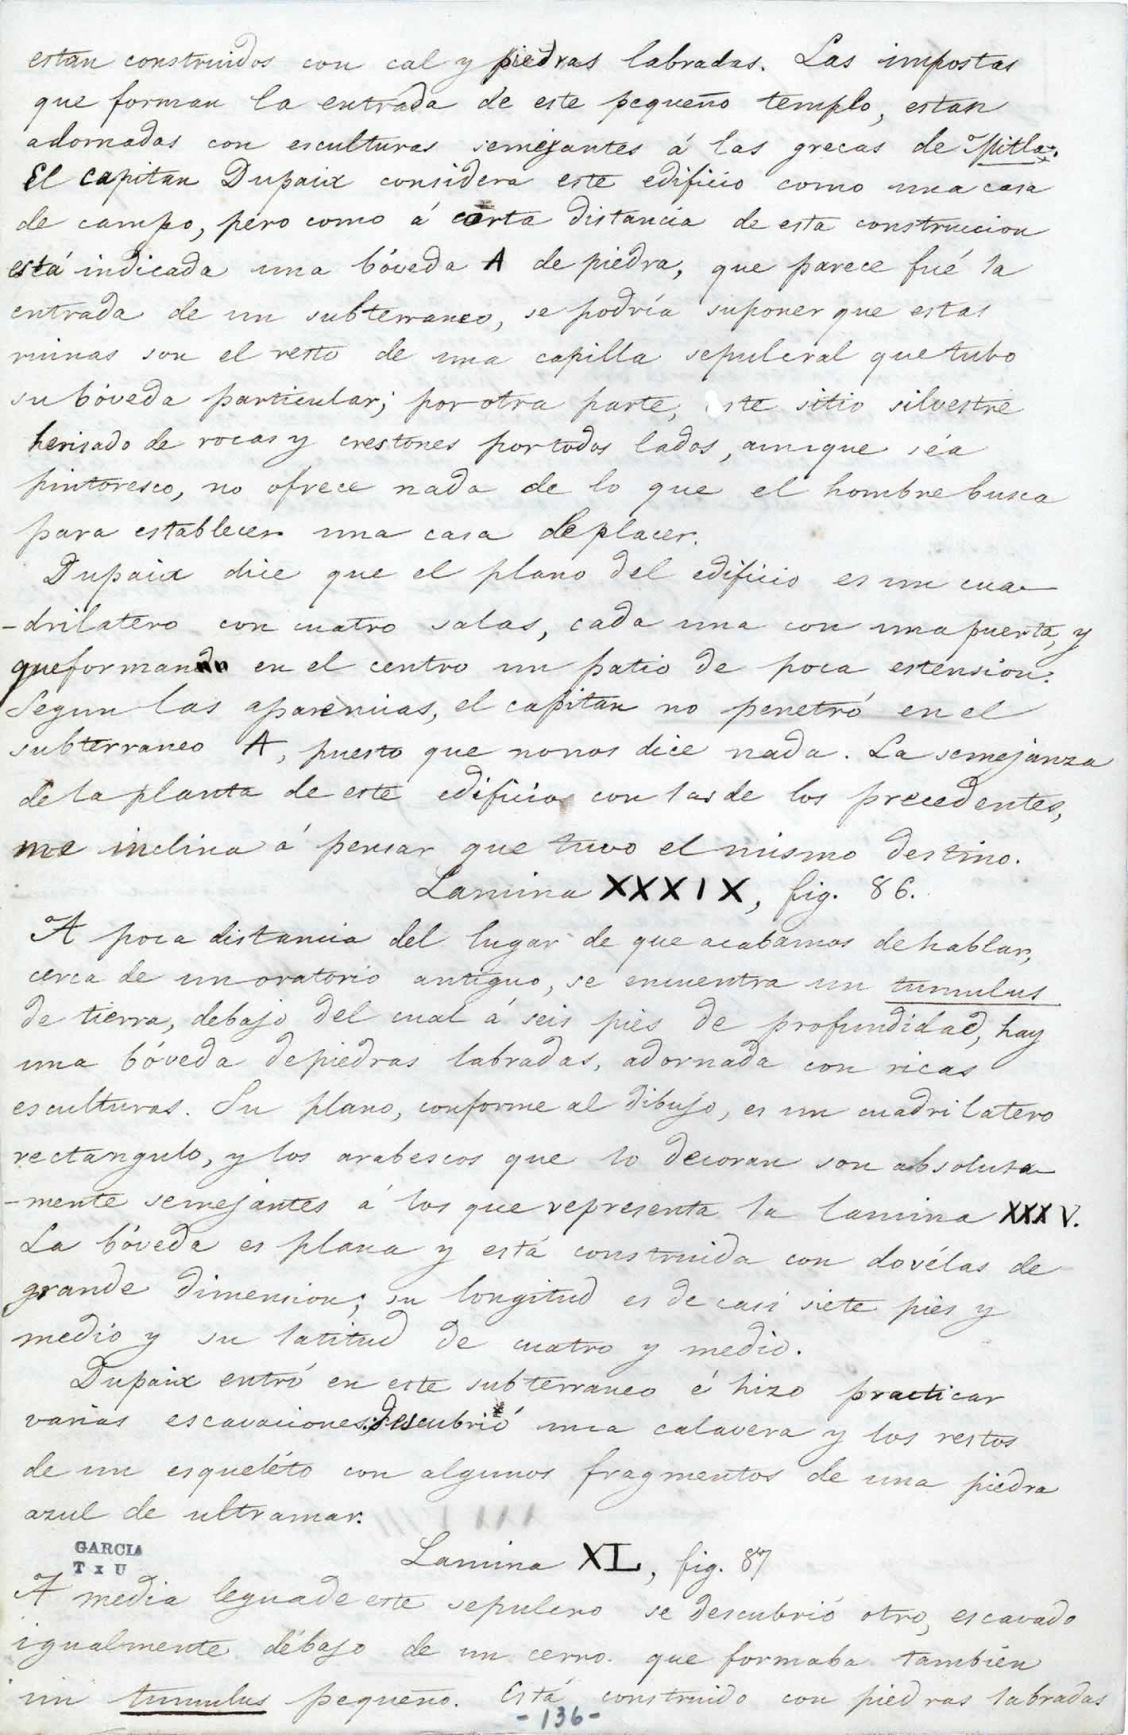 estan construidos con cal y piedras labradas. Las impostas
que forman la entrada de este pequeño templo, estan
adornadas con esculturas semejantes á las grecas de Mitla.
El capitan Dupaix considera este edificio como una casa
de campo, pero como á corta distancia de esta construccion
está indicada una bóveda A de piedra, que parece fué la
entrada de un subterraneo, se podría suponer que estas
ruinas son el resto de una capilla sepulcral que tubo
su bóveda particular; por otra parte, este sitio silvestre
herisado de rocas y crestones por todos lados, aunque séa
pintoresco, no ofrece nada de lo que el hombre busca
para establecer una casa de placer.
Dupaix dice que el plano del edificio es un cua-
-drilatero con cuatro salas, cada una con una puerta, y
que forman en el centro un patio de poca estension.
Segun las apariencias, el capitan no penetró en el
subterraneo A, puesto que no nos dice nada. La semejanza
de la planta de este edificio con las de los precedentes,
me inclina á pensar que tuvo el mismo destino.
Lamina XXXIX, fig. 86.
A poca distancia del lugar de que acabamos de hablar,
cerca de un oratorio antiguo, se encuentra un tumulus
de tierra, debajo del cual á seis piés de profundidad, hay
una bóveda de piedras labradas, adornada con ricas
esculturas. Su plano, conforme al dibujo, es un cuadrilatero
rectangulo, y los arabescos que lo decoran son absoluta-
-mente semejantes á los que representa la lamina XXXV.
La bóveda es plana y está construida con dovélas de
grande dimension; su longitud es de casi siete piés y
medio y su latitud de cuatro y medio.
Dupaix entró en este subterraneo é hizo practicar
varias escavaciones; descubrió una calavera y los restos
de un esqueléto con algunos fragmentos de una piedra
azul de ultramar.
GARCIA
T x U
Lamina XL, fig. 87
A media legua de este sepulcro se descubrió otro, escavado
igualmente débajo de un cerro que formaba tambien
un tumulus pequeño. Está construido con piedras labradas
-136-